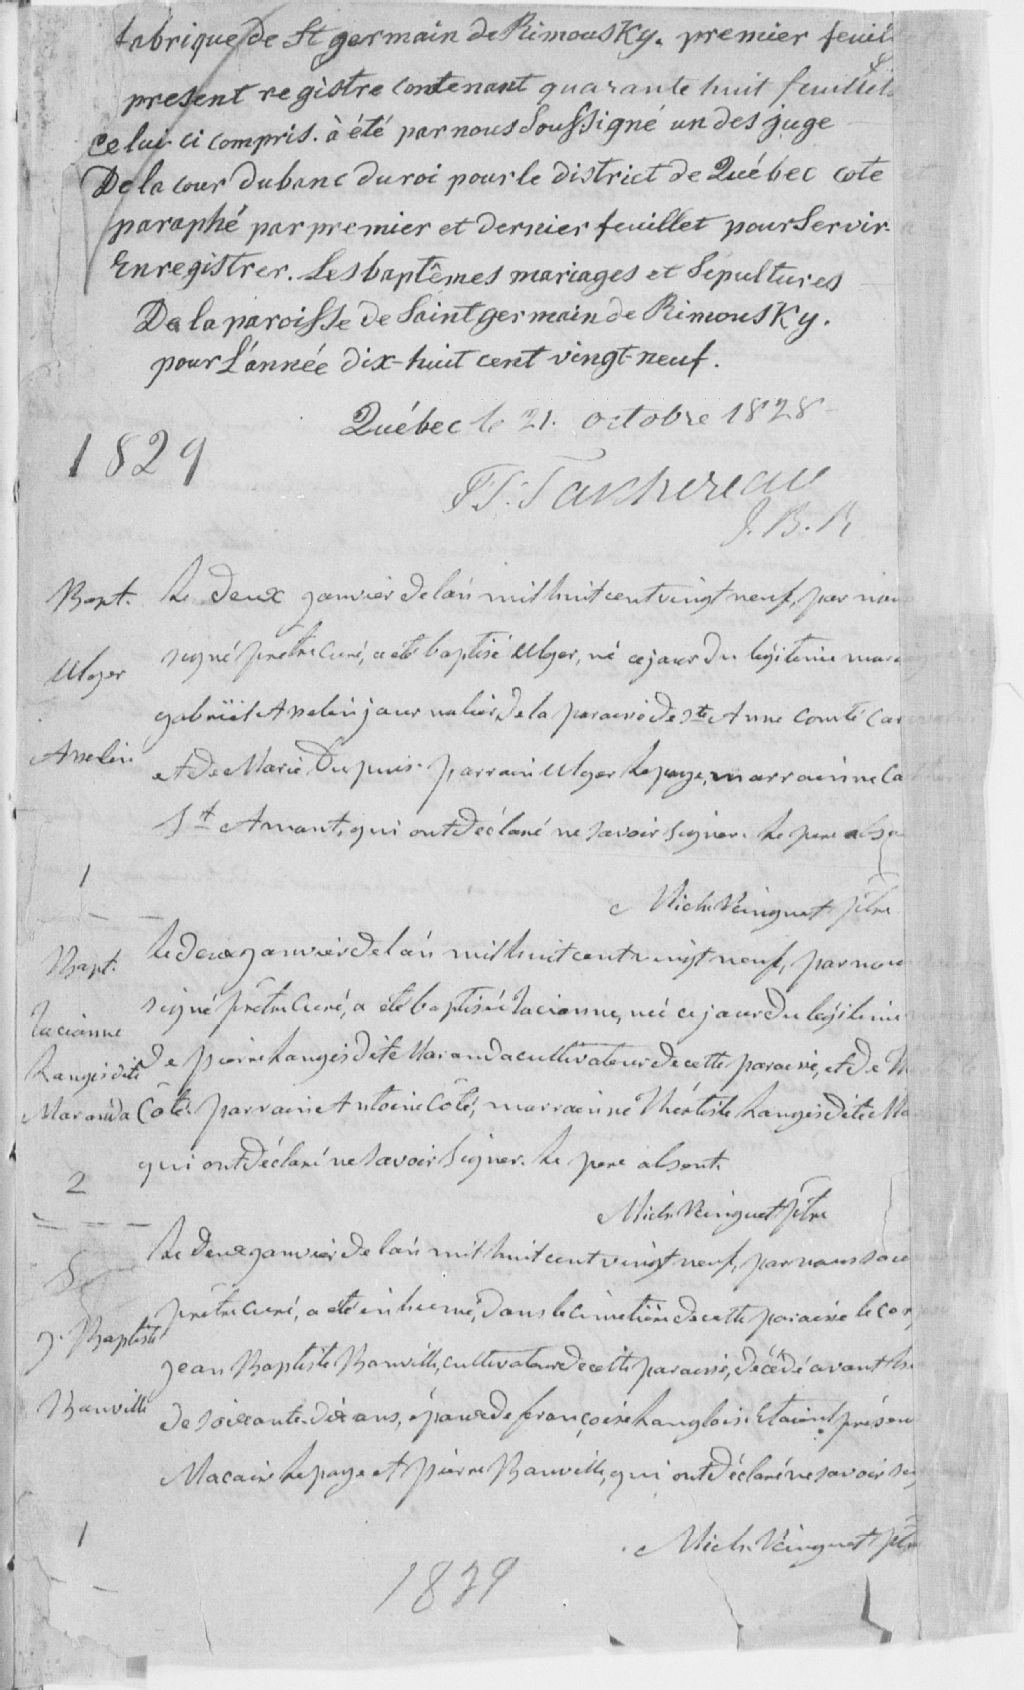 fabrique de St germain de Rimousky. premier feuil
present registre contenant quarante huit feuillets
Celui ci compris. à été par nous Soussigné un des juge
De la cour du banc du roi pour le district de Québec coté
paraphé par premier et dernier feuillet pour Servir
Enregistrer. Les baptêmes mariages et Sépultures
De la paroisse de Saint germain de Rimousky.
pour L'année dix-huit cent vingt-neuf.
Québec le 21. octobre 1828
1829
J.T. Taschereau
J.B.R
Bapt. Le deux janvier de l'an mil huit cent vingt neuf, par nous
signé prêtre curé, a été baptisé Ulger, né ce jour du légitime mar
Ulger
gabriel Asselin journalier de la paroisse de Ste Anne comté
Asselin
et de Marie Dupuis. parrain Ulger Lepage, marrainne
St Amant, qui ont déclaré ne savoir signer. Le pere abse
1
Mich. Ringuet ptre
Bapt. Le deux janvier de l'an mil huit cent vingt neuf, par nous
signé prêtre curé, a été baptisée Lucienne, née ce jour du légitime
Lucienne
de pierre Langis dite Maranda cultivateur de cette paroisse, et de
Langis dite
Maranda
Côté. parrain Antoine Côté, marrainne Thértiste Langis dite Ma
qui ont déclaré ne savoir signer. Le pere absent.
2
Mich. Ringuet ptre
Le deux janvier de l'an mil huit cent vingt neuf, par nous sous
S
prêtre curé, a été inhumé, dans le cimetière de cette paroisse le cor
J. Baptiste
jean Baptiste Banville, cultivateur de cette paroisse, décédé avant hi
Banville
de soixante-dix ans, époux de françoise Langlois. Etaient présen
Macaire Lepage et pierre Banville, qui ont déclaré ne savoir si
1
Mich. Ringuet ptre
1829